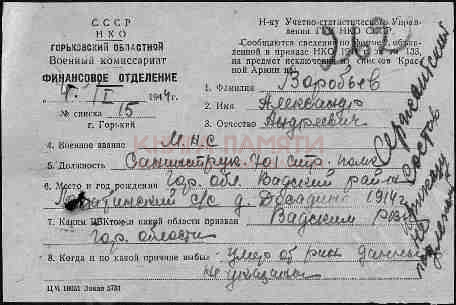 СССР
НКО
ГОРЬКОВСКИЙ ОБЛАСТНОЙ
Военный комиссариат
ФИНАНСОВОЕ ОТДЕЛЕНИЕ
1944 г.
№ списка 15
г. Горький
Н-ку Учетно-статистического Управления ГУФ НКО СССР
Сообщаются сведения по форме, объявленной в приказе НКО 19 г. № 138,
на предмет исключения из списков Красной Армии
1. Фамилия Воробьев
2. Имя Александр
3. Отчество Андреевич
КНИГА ПАМЯТИ
4. Военное звание М.н.с
5. Должность Санинструк. 701 стр. полка
6. Место и год рождения Гор. обл. Вадский район
с/с д. 1914 г.
7. Каким РВК той и какой области призван Вадским РВК
Гор. области
8. Когда и по какой причине выбыл умер от ран данных
не указаны
Сержантский
состав
Ц М 18031 Заказ 5731